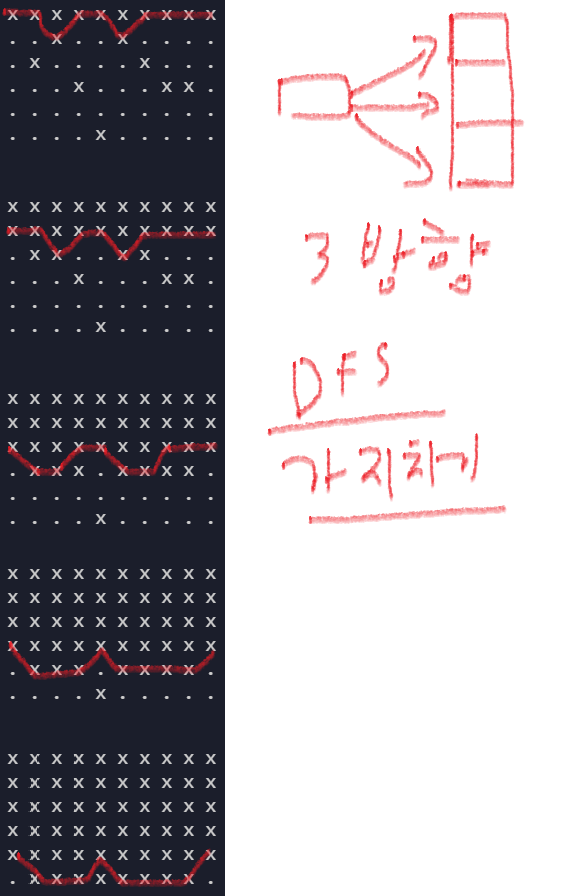 x x x x x x x x x x
. . x . . x . . . .
. x . . . . x . . .
. . . x . . . x x .
. . . . . . . . . .
. . . . x . . . . .
x x x x x x x x x x
x x x x x x x x x x
. x x . . x x . . .
. . . x . . . x x .
. . . . . . . . . .
. . . . x . . . . .
x x x x x x x x x x
x x x x x x x x x x
x x x x x x x x x x
. x x x . x x x x .
. . . . . . . . . .
. . . . x . . . . .
x x x x x x x x x x
x x x x x x x x x x
x x x x x x x x x x
x x x x x x x x x x
. x x x . x x x x .
. . . . x . . . . .
x x x x x x x x x x
x x x x x x x x x x
x x x x x x x x x x
x x x x x x x x x x
x x x x x x x x x x
. x x x x x x x x .
3 방향
DFS
가지치기